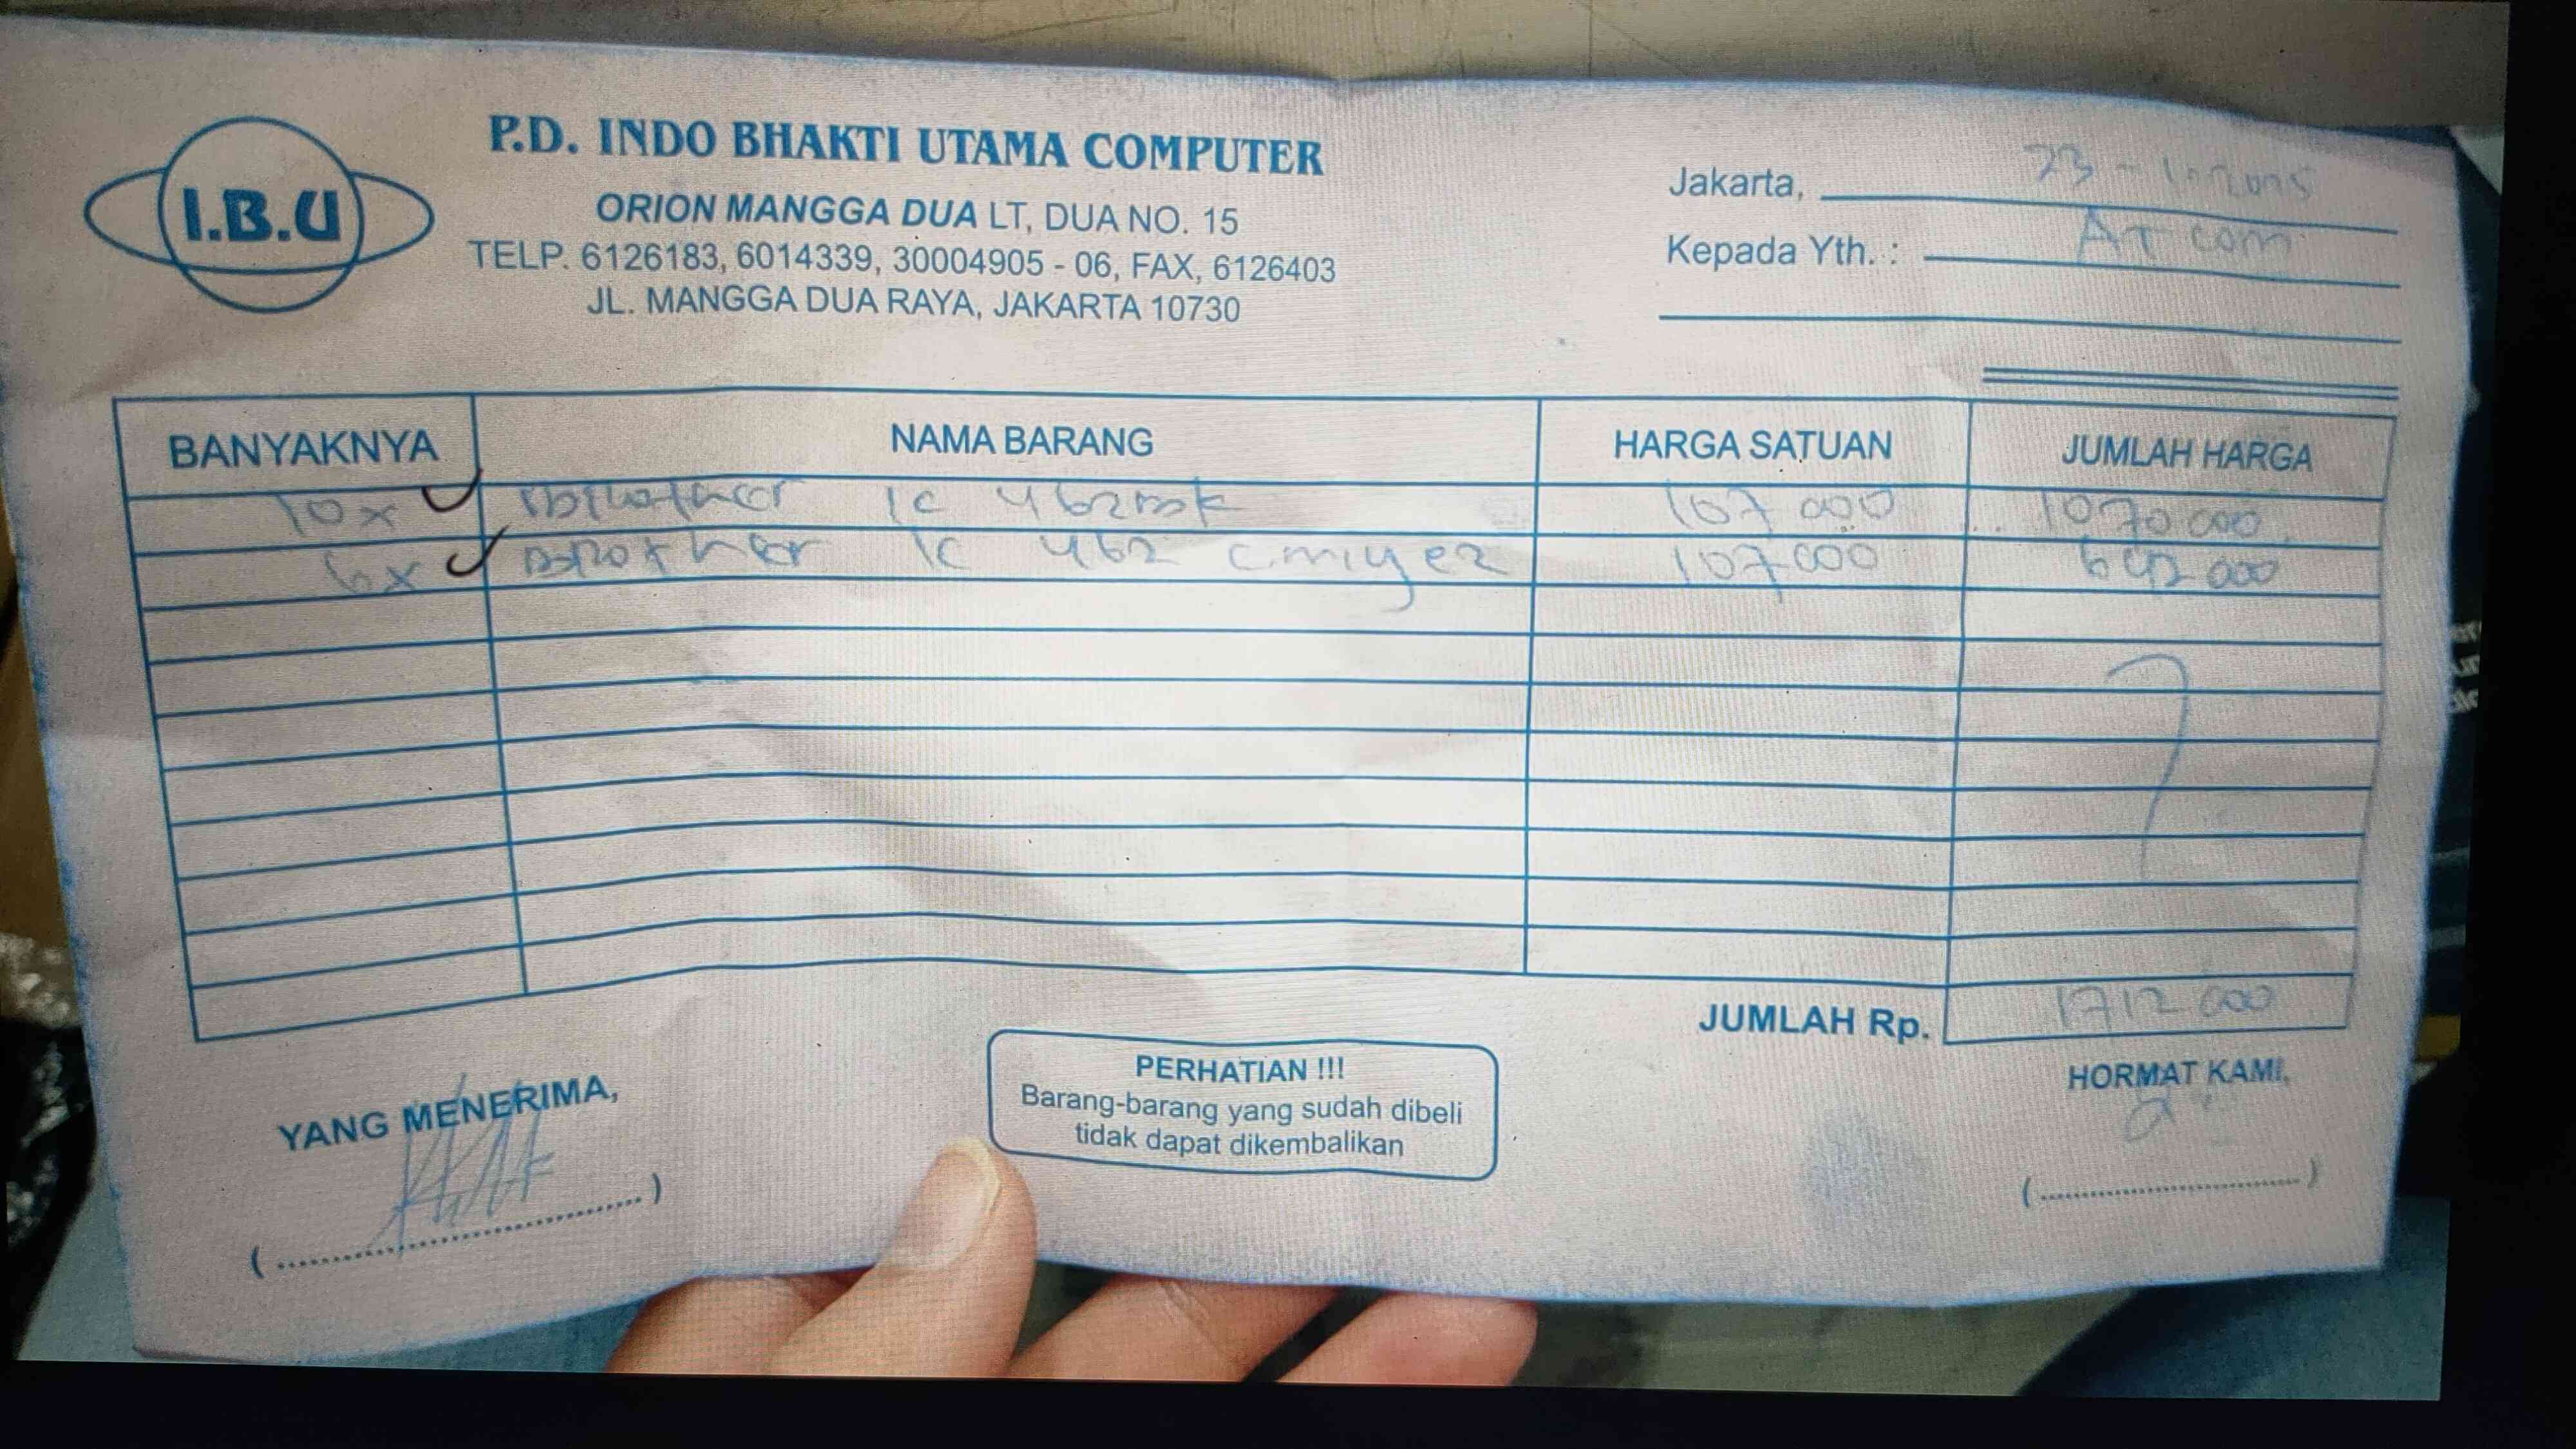 I.B.U
P.D. INDO BHAKTI UTAMA COMPUTER
ORION MANGGA DUA LT, DUA NO. 15
TELP. 6126183, 6014339, 30004905 - 06, FAX, 6126403
JL. MANGGA DUA RAYA, JAKARTA 10730
Jakarta, 23 -
Kepada Yth. : AT com
BANYAKNYA NAMA BARANG HARGA SATUAN JUMLAH HARGA
10x Brother lc 462 BK 107 000 1070 000
6x Brother lc 462 107 000 642 000
JUMLAH Rp. 1712 000
YANG MENERIMA,
PERHATIAN !!!
Barang-barang yang sudah dibeli
tidak dapat dikembalikan
HORMAT KAMI,